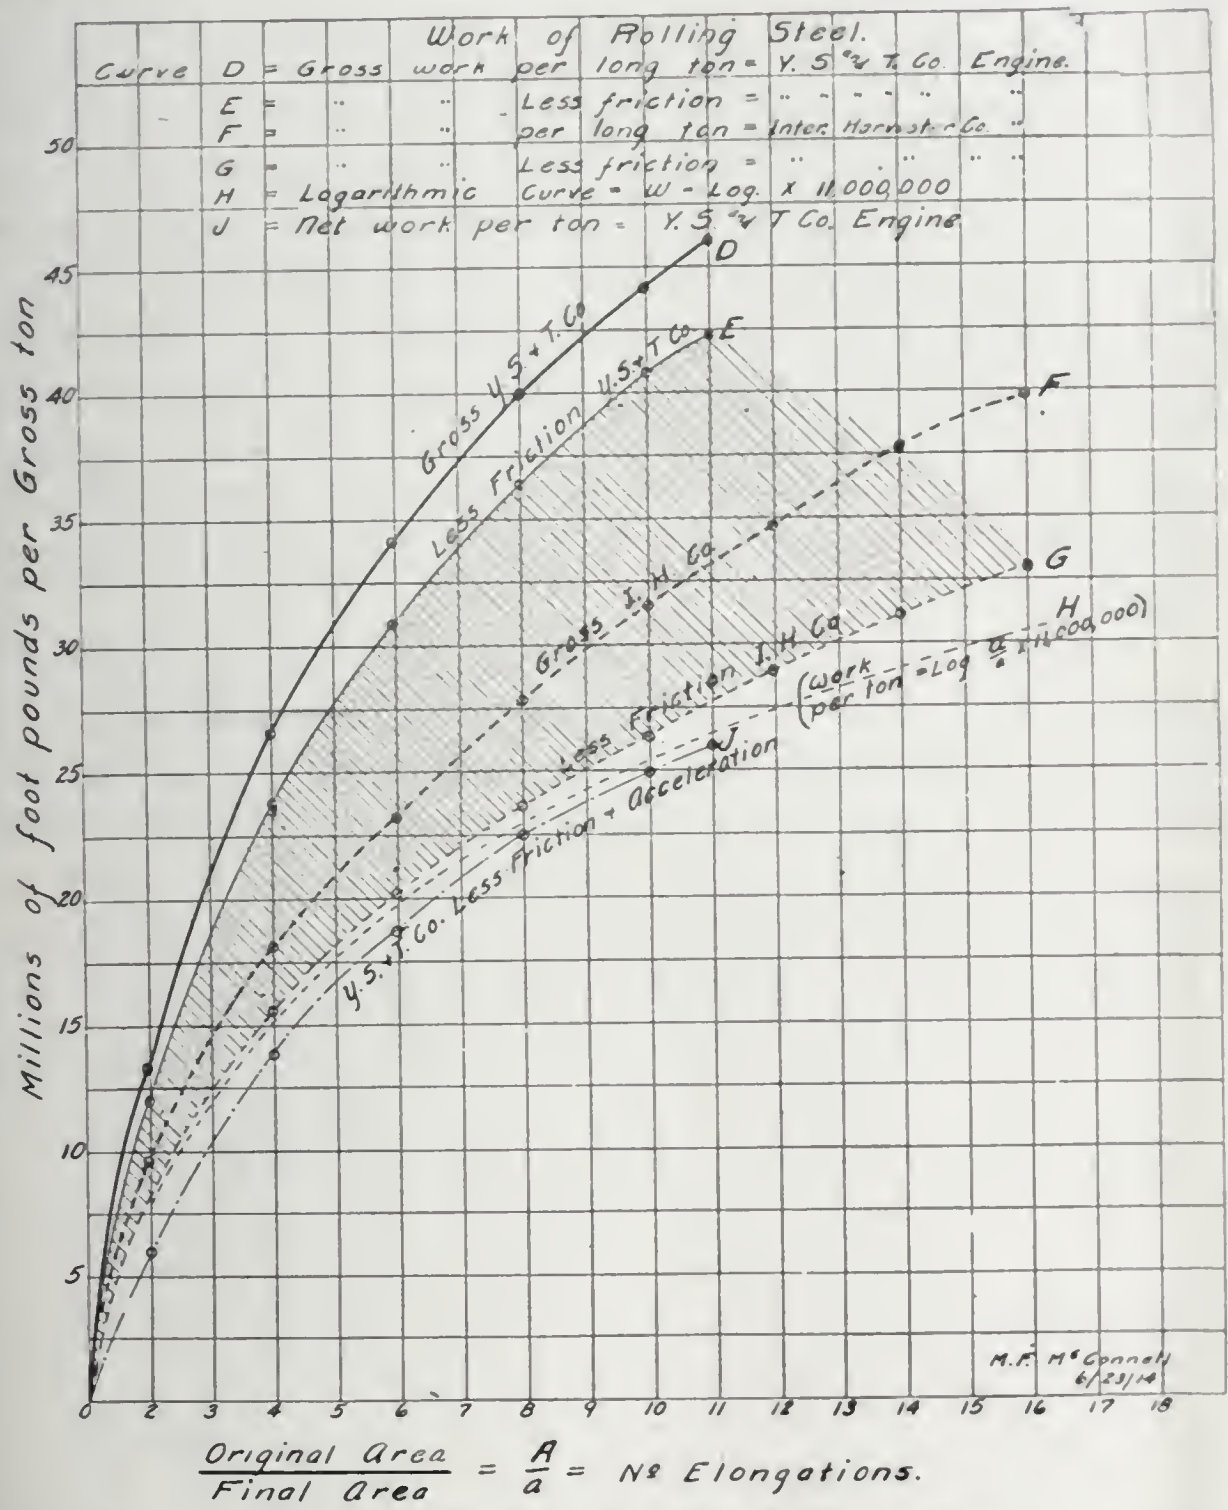 Work of Rolling Steel.
Curve D = Gross work per long ton = Y. S & T. Co. Engine.
E = " " Less friction = " - - " "
F = " " per long ton = Inter. Harvester Co. "
G = " " Less friction = " " " "
H = Logarithmic Curve = W = Log. x 11,000,000
J = Net work per ton = Y. S. & T Co. Engine
50
45
40
35
30
25
20
15
10
5
Millions of foot pounds per Gross ton
D
Gross Y.S & T. Co
E
Less Friction Y.S & T Co.
F
Gross I. H Co
G
Less Friction I. H Co
H
(work per ton = Log a/a x 11,000,000)
J
Y.S. & T. Co. Less Friction & Acceleration
M.F. McConnell
6/23/14
0 2 3 4 5 6 7 8 9 10 11 12 13 14 15 16 17 18
Original Area / Final Area = A/a = No Elongations.